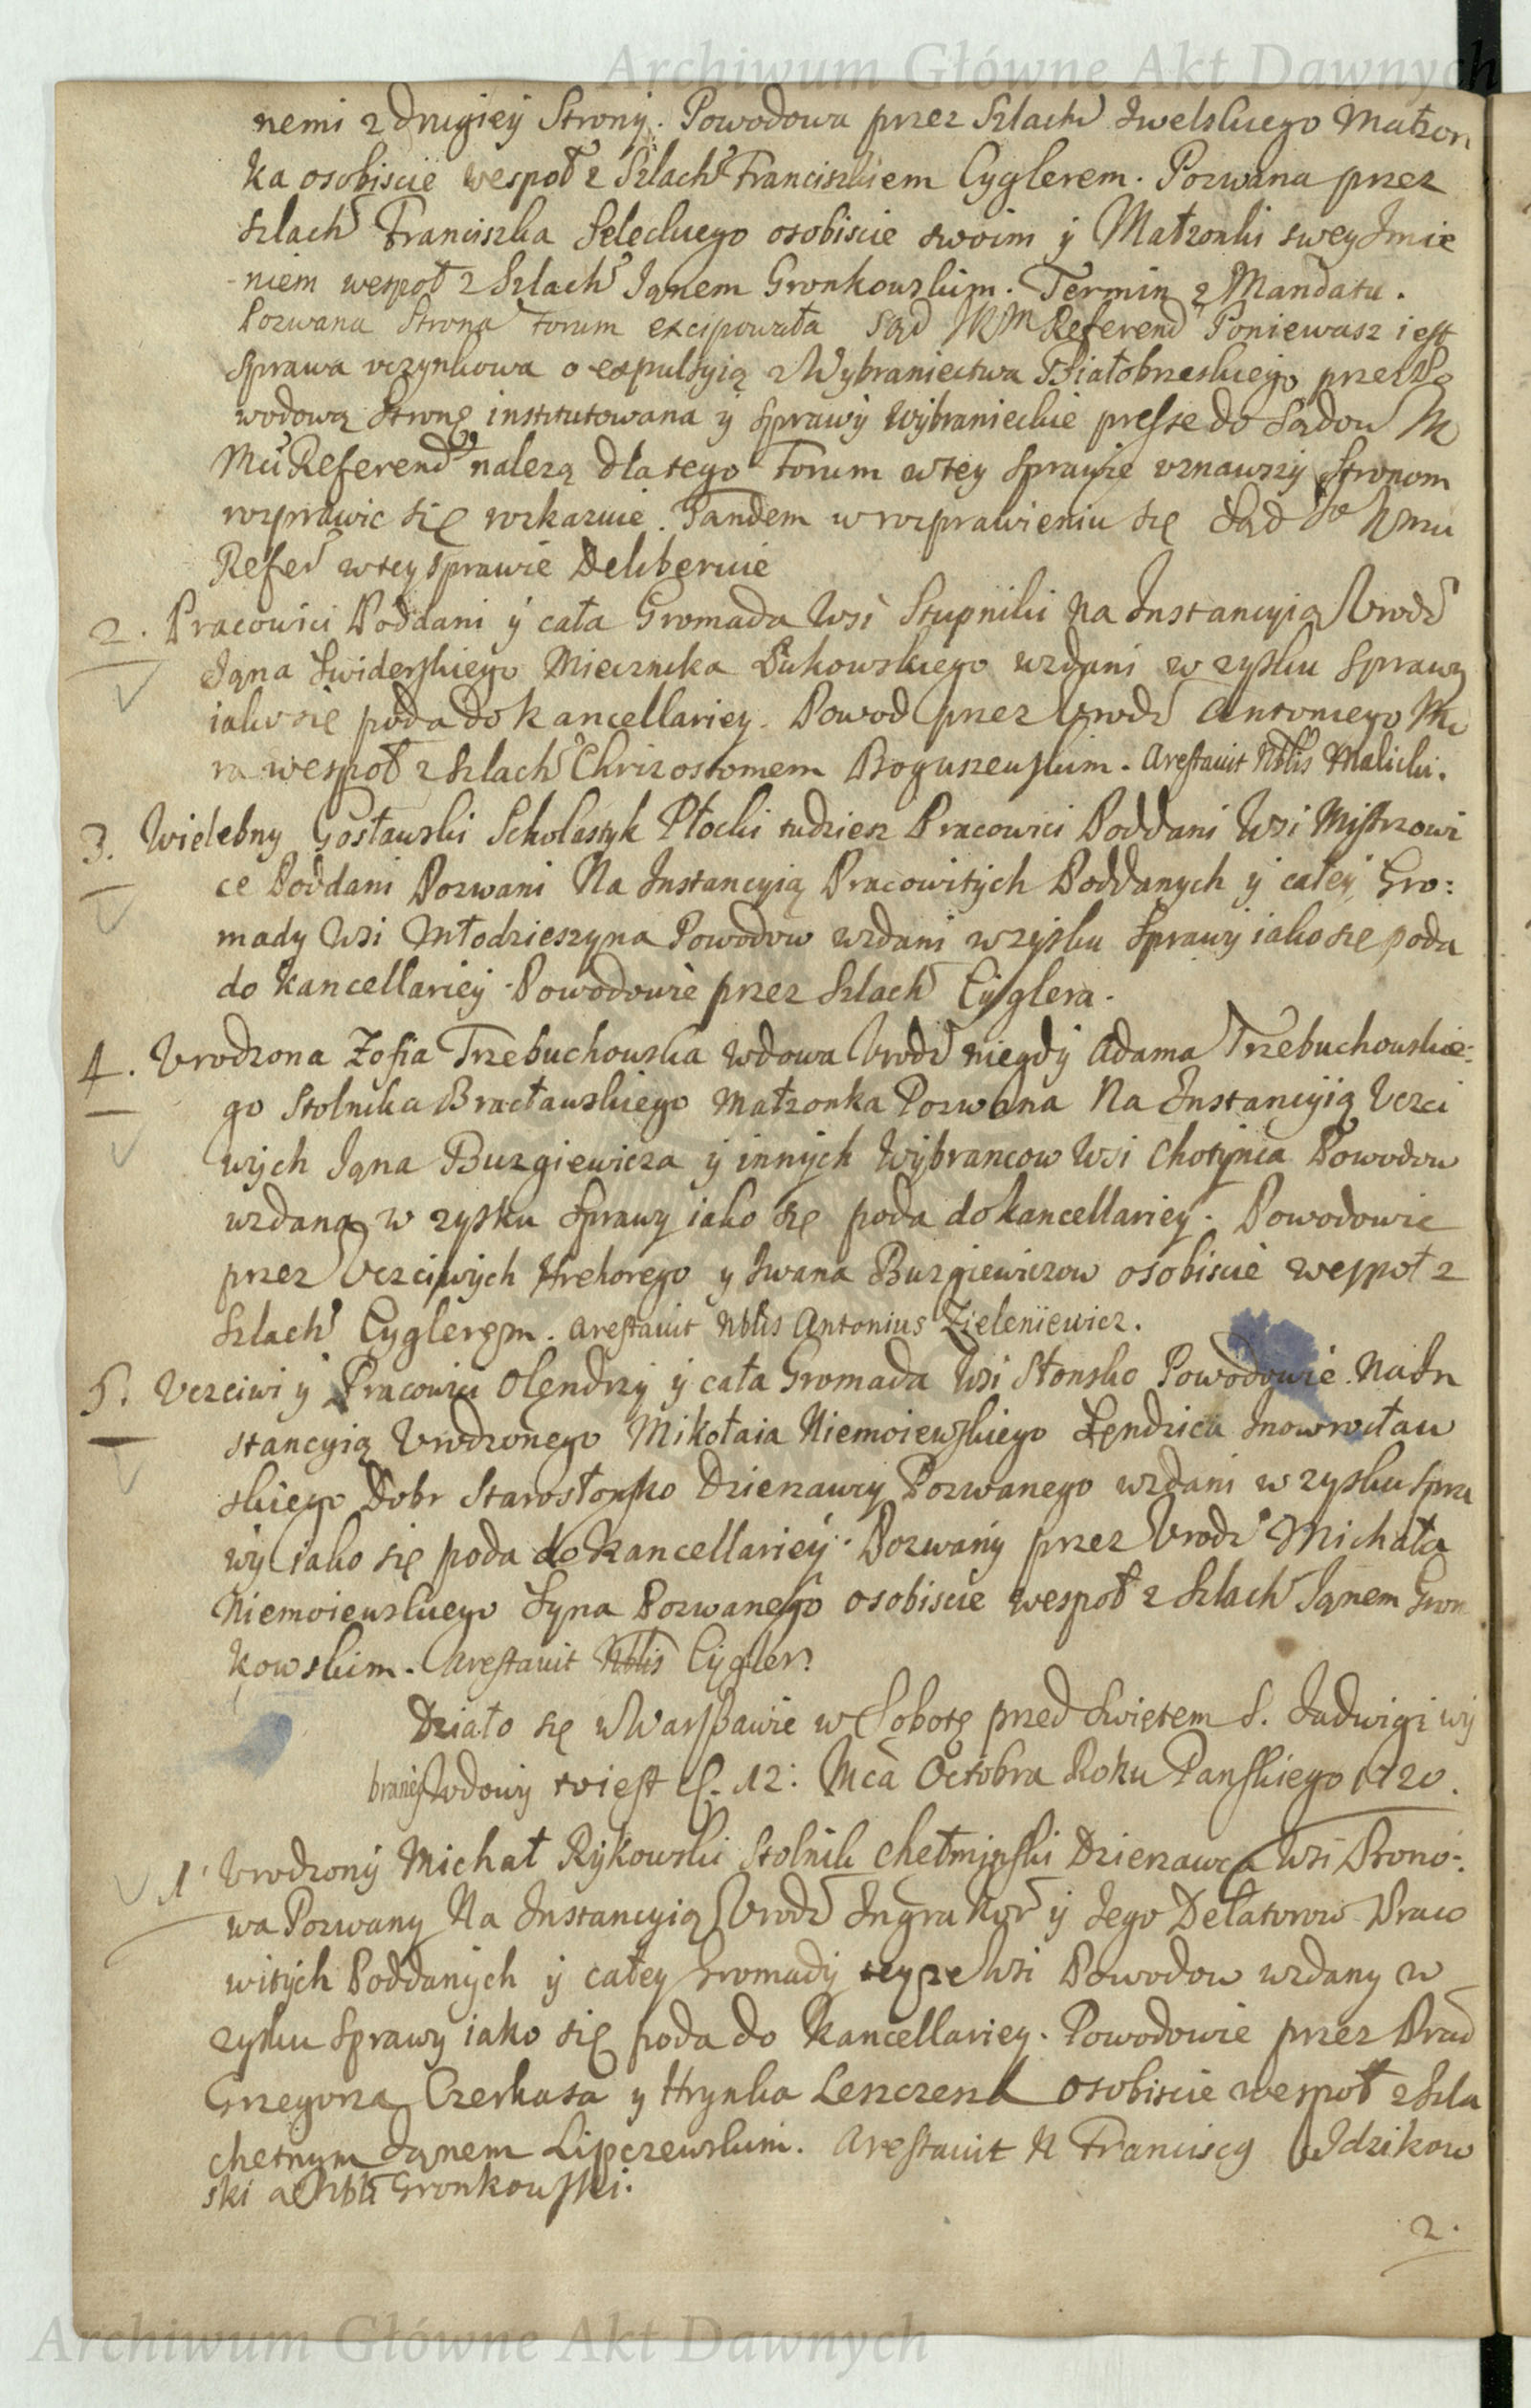 Archiwum Główne Akt Dawnych
nemi z drugiey Strony. Powodowa przez Szlach Iwelskiego Małzon
ka osobiscie wespoł z Szlach Franciszkiem Cyglerem. Pozwana przez
Szlach Franciszka Seleckiego osobiscie swoim ÿ Małzonki swey Imie
niem wespoł z Szlach Iąnem Gronkowskim. Termin z Mandatu.
Pozwana Strona Forum excipowała Sąd JKM Referend Poniewasz iest
Sprawa vczynkowa o expulsyią z Wybraniectwa Białobrzeskiego przez Po
wodową Stronę institutowana ÿ Sprawÿ Wÿbranieckie presse do Sądow
Referend nalezą dlatego Forum wtey Sprawie vznawszÿ Stronom
rozprawic się rozkazuie. Tandem w rozprawieniu się Sąd
Refer wtey Sprawie Deliberuie
2. Pracowici Poddani ÿ cała Gromada Wsi Stupniki Na Instancyią Vrodz
Iąna Swiderskiego Miecznika Łukowskiego wzdani w zysku Sprawy
iako się poda do kancellariey. Powod przez Vrodz Antoniego Mi
ra wespoł z Szlach Chrizostomem Boguszewskim. Arestauit Nblis Malicki.
3. Wielebny Gosławski Scholastyk Płocki tudziesz Pracowici Poddani Wsi Mistrzowi
ce Poddani Pozwani Na Instancyią Pracowitÿch Poddanych ÿ całeÿ Gro:
mady Wsi Młodzieszyna Powodow wzdani w zÿsku Sprawÿ iako się poda
do kancellarieÿ. Powodowie przez Szlach Cÿglera.
4. Vrodzona Zofia Trzebuchowska Wdowa Vrodz niegdÿ Adama Trzebuchowskie:
go Stolnika Bracławskiego Małzonka Pozwana Na Instancÿią Vczci
wÿch Iąna Buzgiewicza ÿ innÿch Wÿbrancow Wsi Chotÿnia Powodow
wzdana w zysku Sprawy iako się poda do kancellariey. Powodowie
przez Vczciwÿch Hrehorego y Iwana Buzgiewiczow osobiscie wespoł z
Szlach Cyglerem. Arestauit Nblis Antonius Zieleniewicz.
5. Vczciwi ÿ Pracowici Olęndrzÿ ÿ cała Gromada Wsi Słonsko Powodowie Na In
stancyią Vrodzonego Mikołaia Niemoiewskiego Sęndzica Inowrocław
skiego Dobr Starosłonsko Dzierzawcy Pozwanego wzdani w zysku Spra
wÿ iako się poda do kancellarieÿ. Pozwanÿ przez Vrodz Michała
Niemoiewskiego Syna Pozwanego osobiscie wespoł z Szlach Iąnem Gron
kowskim. Arestauit Nblis Cÿgler.
Działo się w Warszawie w Sobotę przed Swiętem S. Iadwigi wÿ
branie Wdowÿ to iest d. 12: Mca Octobra Roku Panskiego 1720.
1. Vrodzonÿ Michał Rÿkowski Stolnik Chełmiński Dzierzawca Wsi Brono-:
wa Pozwany Na Instancyią Vrodz Ingra Kor ÿ Iego Delatorow Praco
witÿch Poddanÿch ÿ całeÿ Gromadÿ teyze Wsi Powodow wzdany w
zysku Sprawy iako się poda do Kancellariey. Powodowie przez Prac
Grzegorza Czerkasa y Hrynka Leszczenk osobiscie wespoł z Szla
chetnym Iąnem Lipczewskim. Arestauit N Franciscq Idzikow
ski a Nbli Gronkowski.
2.
Archiwum Główne Akt Dawnych